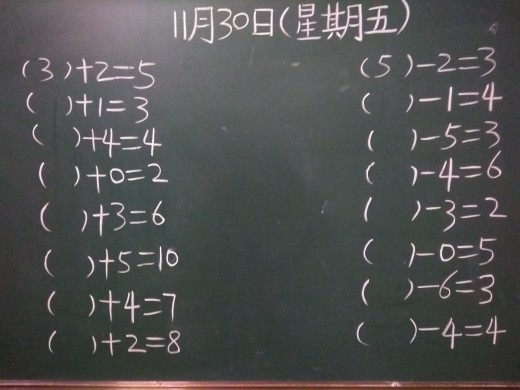 11月30日(星期五)
(3)+2=5 (5)-2=3
( )+1=3 ( )-1=4
( )+4=4 ( )-5=3
( )+0=2 ( )-4=6
( )+3=6 ( )-3=2
( )+5=10 ( )-0=5
( )+4=7 ( )-6=3
( )+2=8 ( )-4=4